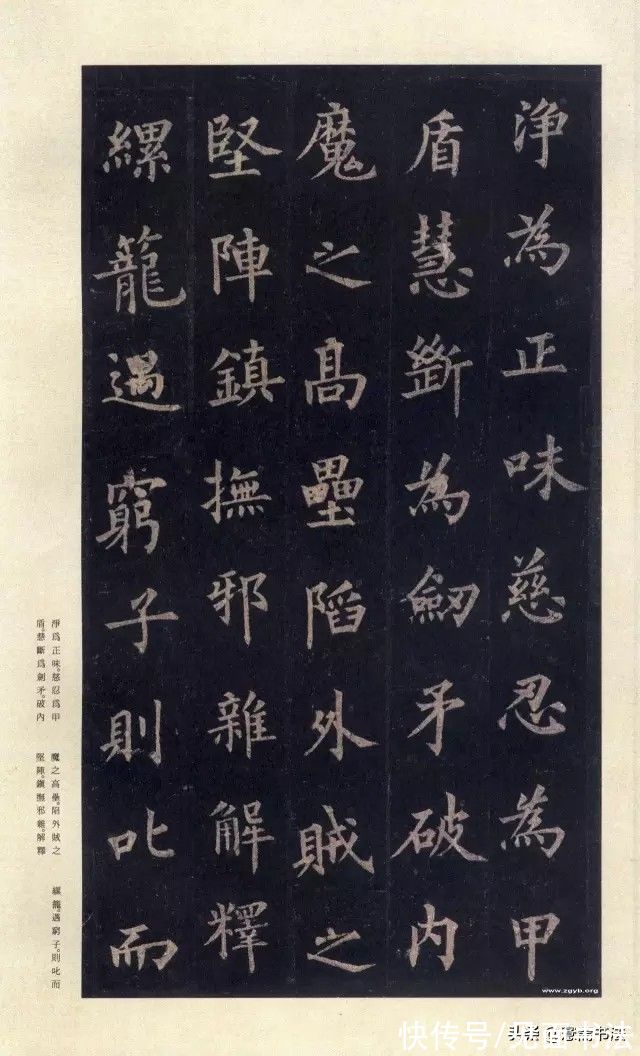 淨為正味慈忍為甲
盾慧斷為劒矛破内
魔之髙壘陷外賊之
堅陣鎮撫邪雜解釋
縲籠遇窮子則叱而
淨爲正味。慈忍爲甲
盾。慧斷爲劍矛。破內
魔之高壘。陷外賊之
堅陣。鎭撫邪雜。解釋
縲籠。遇窮子。則叱而
www.zgyb.org
快传号/见匾书法